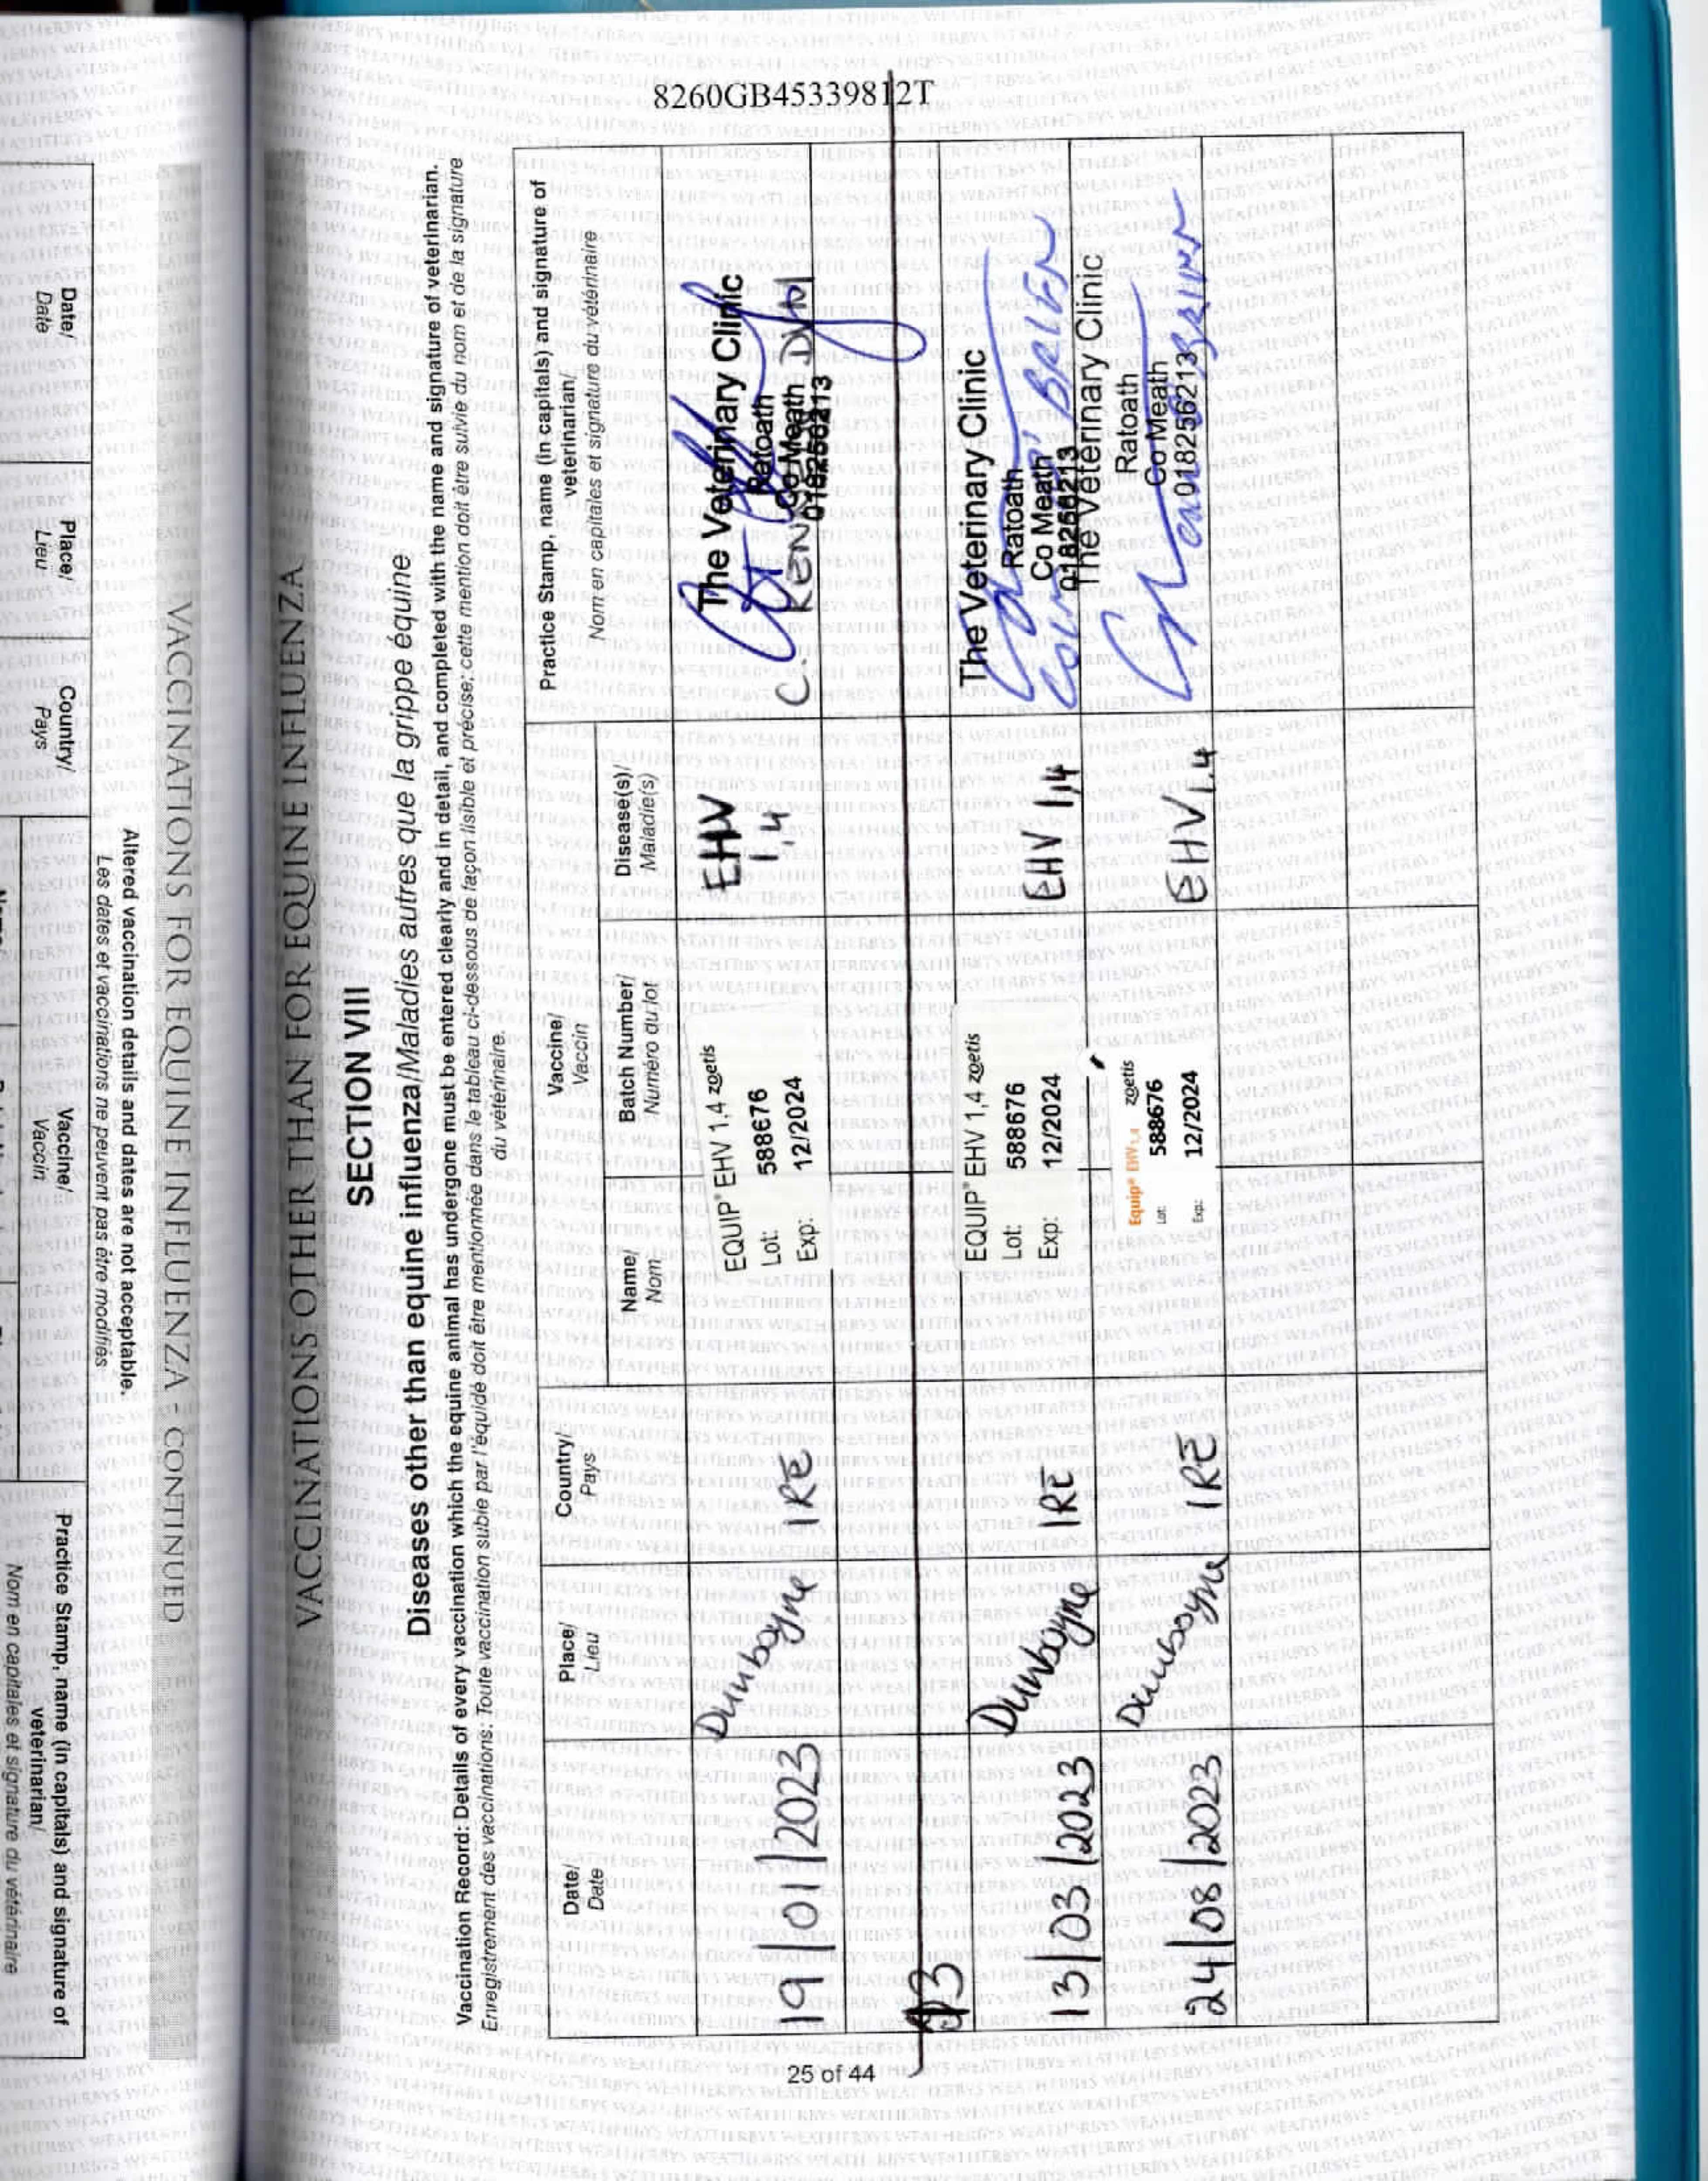 8260GB45339812T
VACCINATIONS FOR EQUINE INFLUENZA - CONTINUED
Altered vaccination details and dates are not acceptable.
Les dates et vaccinations ne peuvent pas être modifiés
Date/
Date
Place/
Lieu
Country/
Pays
Vaccine/
Vaccin
Practice Stamp, name (in capitals) and signature of
veterinarian/
Nom en capitales et signature du vétérinaire
VACCINATIONS OTHER THAN FOR EQUINE INFLUENZA
SECTION VIII
Diseases other than equine influenza/Maladies autres que la grippe équine
Vaccination Record: Details of every vaccination which the equine animal has undergone must be entered clearly and in detail, and completed with the name and signature of veterinarian.
Enregistrement des vaccinations: Toute vaccination subie par l'équidé doit être mentionnée dans le tableau ci-dessous de façon lisible et précise; cette mention doit être suivie du nom et de la signature
du vétérinaire.
Date/
Date
Place/
Lieu
Country/
Pays
Vaccine/
Vaccin
Name/
Nom
Batch Number/
Numéro du lot
Disease(s)/
Maladie(s)
Practice Stamp, name (in capitals) and signature of
veterinarian/
Nom en capitales et signature du vétérinaire
19/01/2023
Dunboyne
IRE
EQUIP® EHV 1,4 zoetis
Lot: 588676
Exp: 12/2024
EHV
1,4
The Veterinary Clinic
Ratoath
Co Meath
018256213
13/03/2023
Dunboyne
IRE
EQUIP® EHV 1,4 zoetis
Lot: 588676
Exp: 12/2024
EHV 1,4
The Veterinary Clinic
Ratoath
Co Meath
018256213
24/08/2023
Dunboyne
IRE
Equip® EHV 1,4 zoetis
Lot: 588676
Exp: 12/2024
EHV 1.4
The Veterinary Clinic
Ratoath
Co Meath
018256213
25 of 44